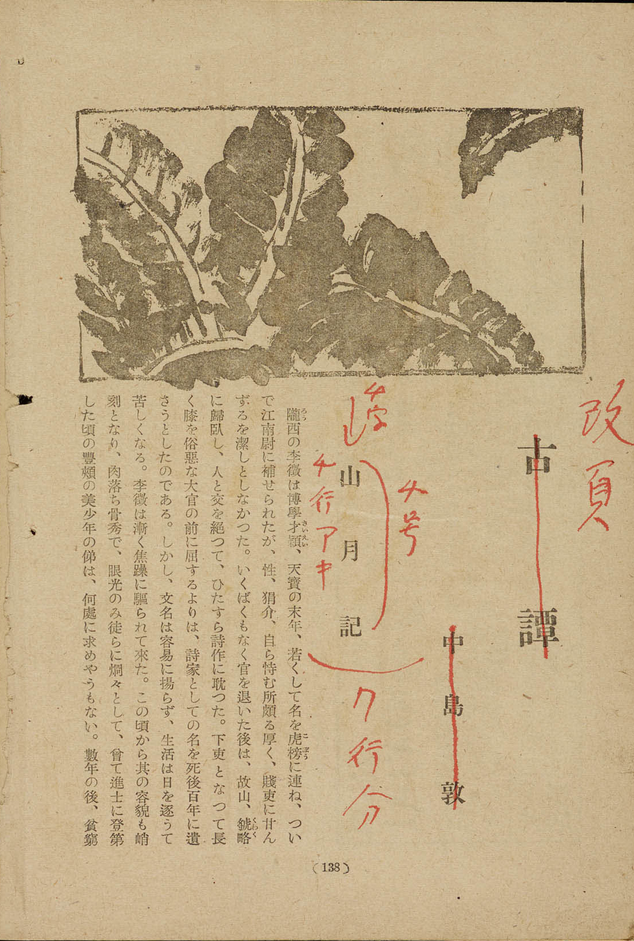 改頁
古譚
中島敦
4号
山月記
4行アキ
7行分
隴西の李徵は博學才穎、天寶の末年、若くして名を虎榜に連ね、つい
で江南尉に補せられたが、性、狷介、自ら恃む所頗る厚く、賤吏に甘ん
ずるを潔しとしなかつた。いくばくもなく官を退いた後は、故山、虢略
に歸臥し、人と交を絕つて、ひたすら詩作に耽つた。下吏となつて長
く膝を俗惡な大官の前に屈するよりは、詩家としての名を死後百年に遺
さうとしたのである。しかし、文名は容易に揚らず、生活は日を逐うて
苦しくなる。李徵は漸く焦躁に驅られて來た。この頃から其の容貌も峭
刻となり、肉落ち骨秀で、眼光のみ徒らに炯々として、曾て進士に登第
した頃の豐頰の美少年の俤は、何處に求めやうもない。數年の後、貧窮
(138)